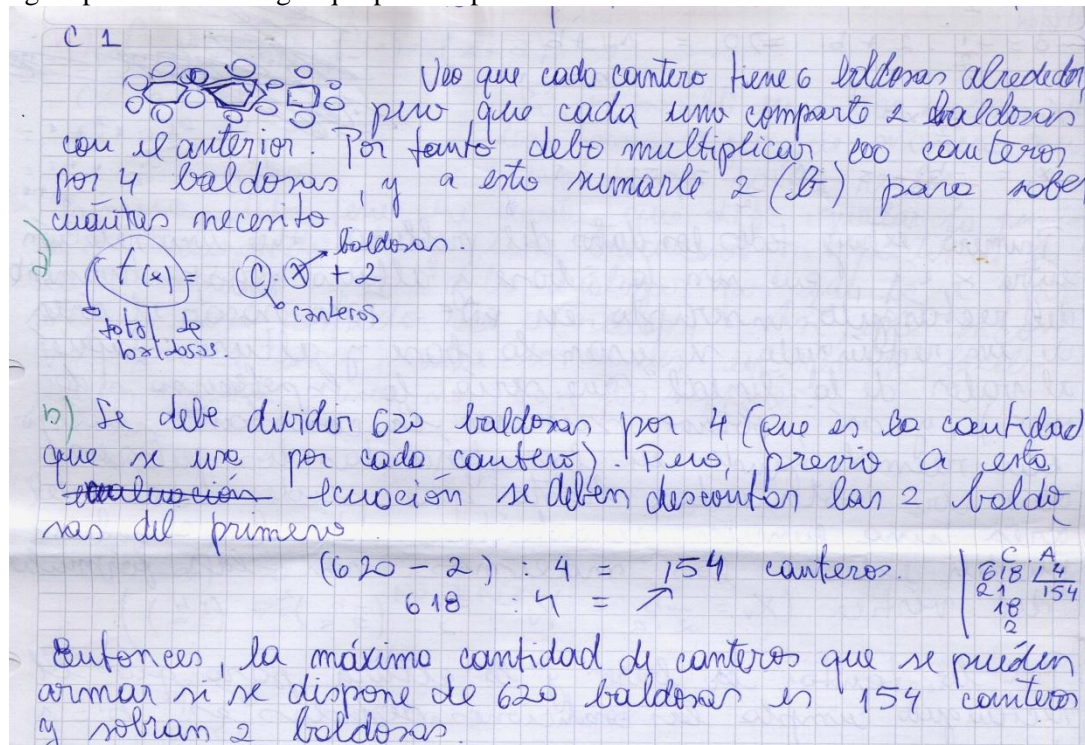 C 1
Veo que cada cantero tiene 6 baldosas alrededor,
pero que cada uno comparte 2 baldosas
con el anterior. Por tanto debo multiplicar 100 canteros
por 4 baldosas, y a esto sumarle 2 (b) para saber
cuántas necesito
a) f(x) = C . X + 2
baldosas.
canteros
total de
baldosas.
b) Se debe dividir 620 baldosas por 4 (que es la cantidad
que se usa por cada cantero). Pero, previo a esta
ecuación se deben descontar las 2 baldo
sas del primero
(620 - 2) : 4 = 154 canteros.
618 : 4 =
C. A.
618 4
21 154
18
2
Entonces, la máxima cantidad de canteros que se pueden
armar si se dispone de 620 baldosas es 154 canteros
y sobran 2 baldosas.